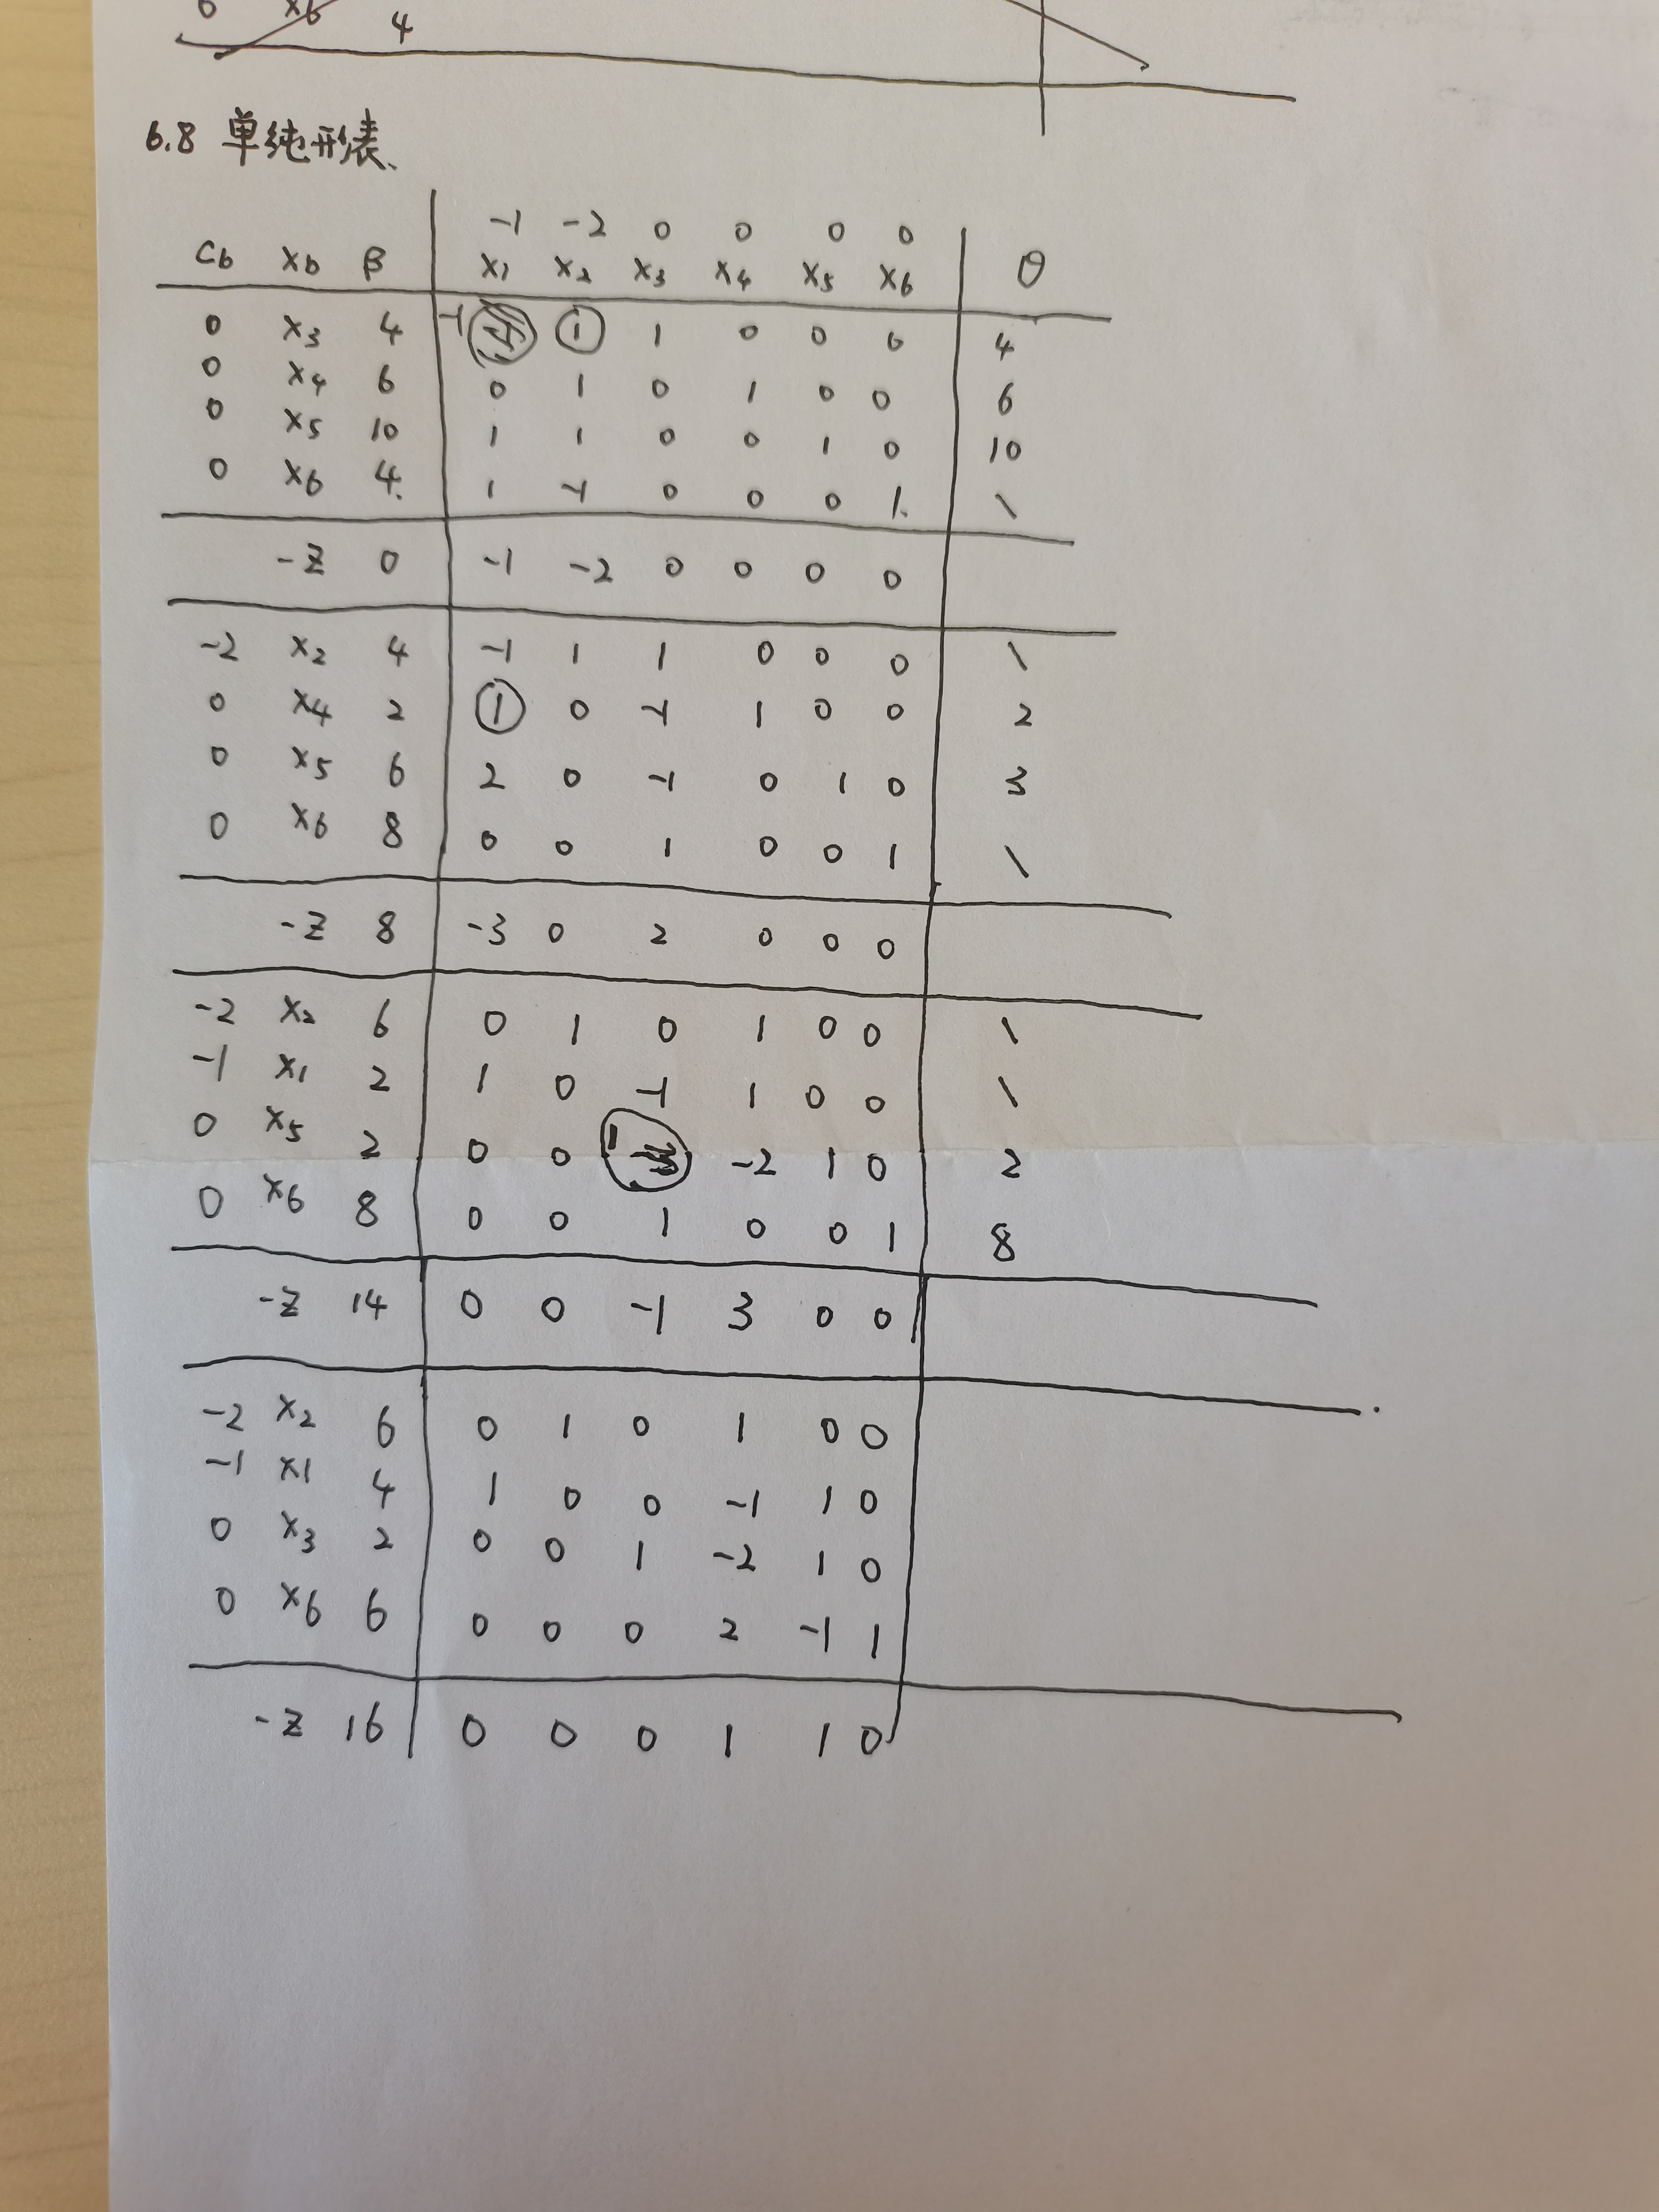 6 x6 4
6.8 单纯形表、
-1 -2 0 0 0 0
Cb Xb β x1 x2 x3 x4 x5 x6 θ
0 x3 4 -1 1 1 0 0 0 4
0 x4 6 0 1 0 1 0 0 6
0 x5 10 1 1 0 0 1 0 10
0 x6 4. 1 -1 0 0 0 1. \
-z 0 -1 -2 0 0 0 0
-2 x2 4 -1 1 1 0 0 0 \
0 x4 2 1 0 -1 1 0 0 2
0 x5 6 2 0 -1 0 1 0 3
0 x6 8 0 0 1 0 0 1 \
-z 8 -3 0 2 0 0 0
-2 x2 6 0 1 0 1 0 0 \
-1 x1 2 1 0 -1 1 0 0 \
0 x5 2 0 0 1 -2 1 0 2
0 x6 8 0 0 1 0 0 1 8
-z 14 0 0 -1 3 0 0
-2 x2 6 0 1 0 1 0 0
-1 x1 4 1 0 0 -1 1 0
0 x3 2 0 0 1 -2 1 0
0 x6 6 0 0 0 2 -1 1
-z 16 0 0 0 1 1 0